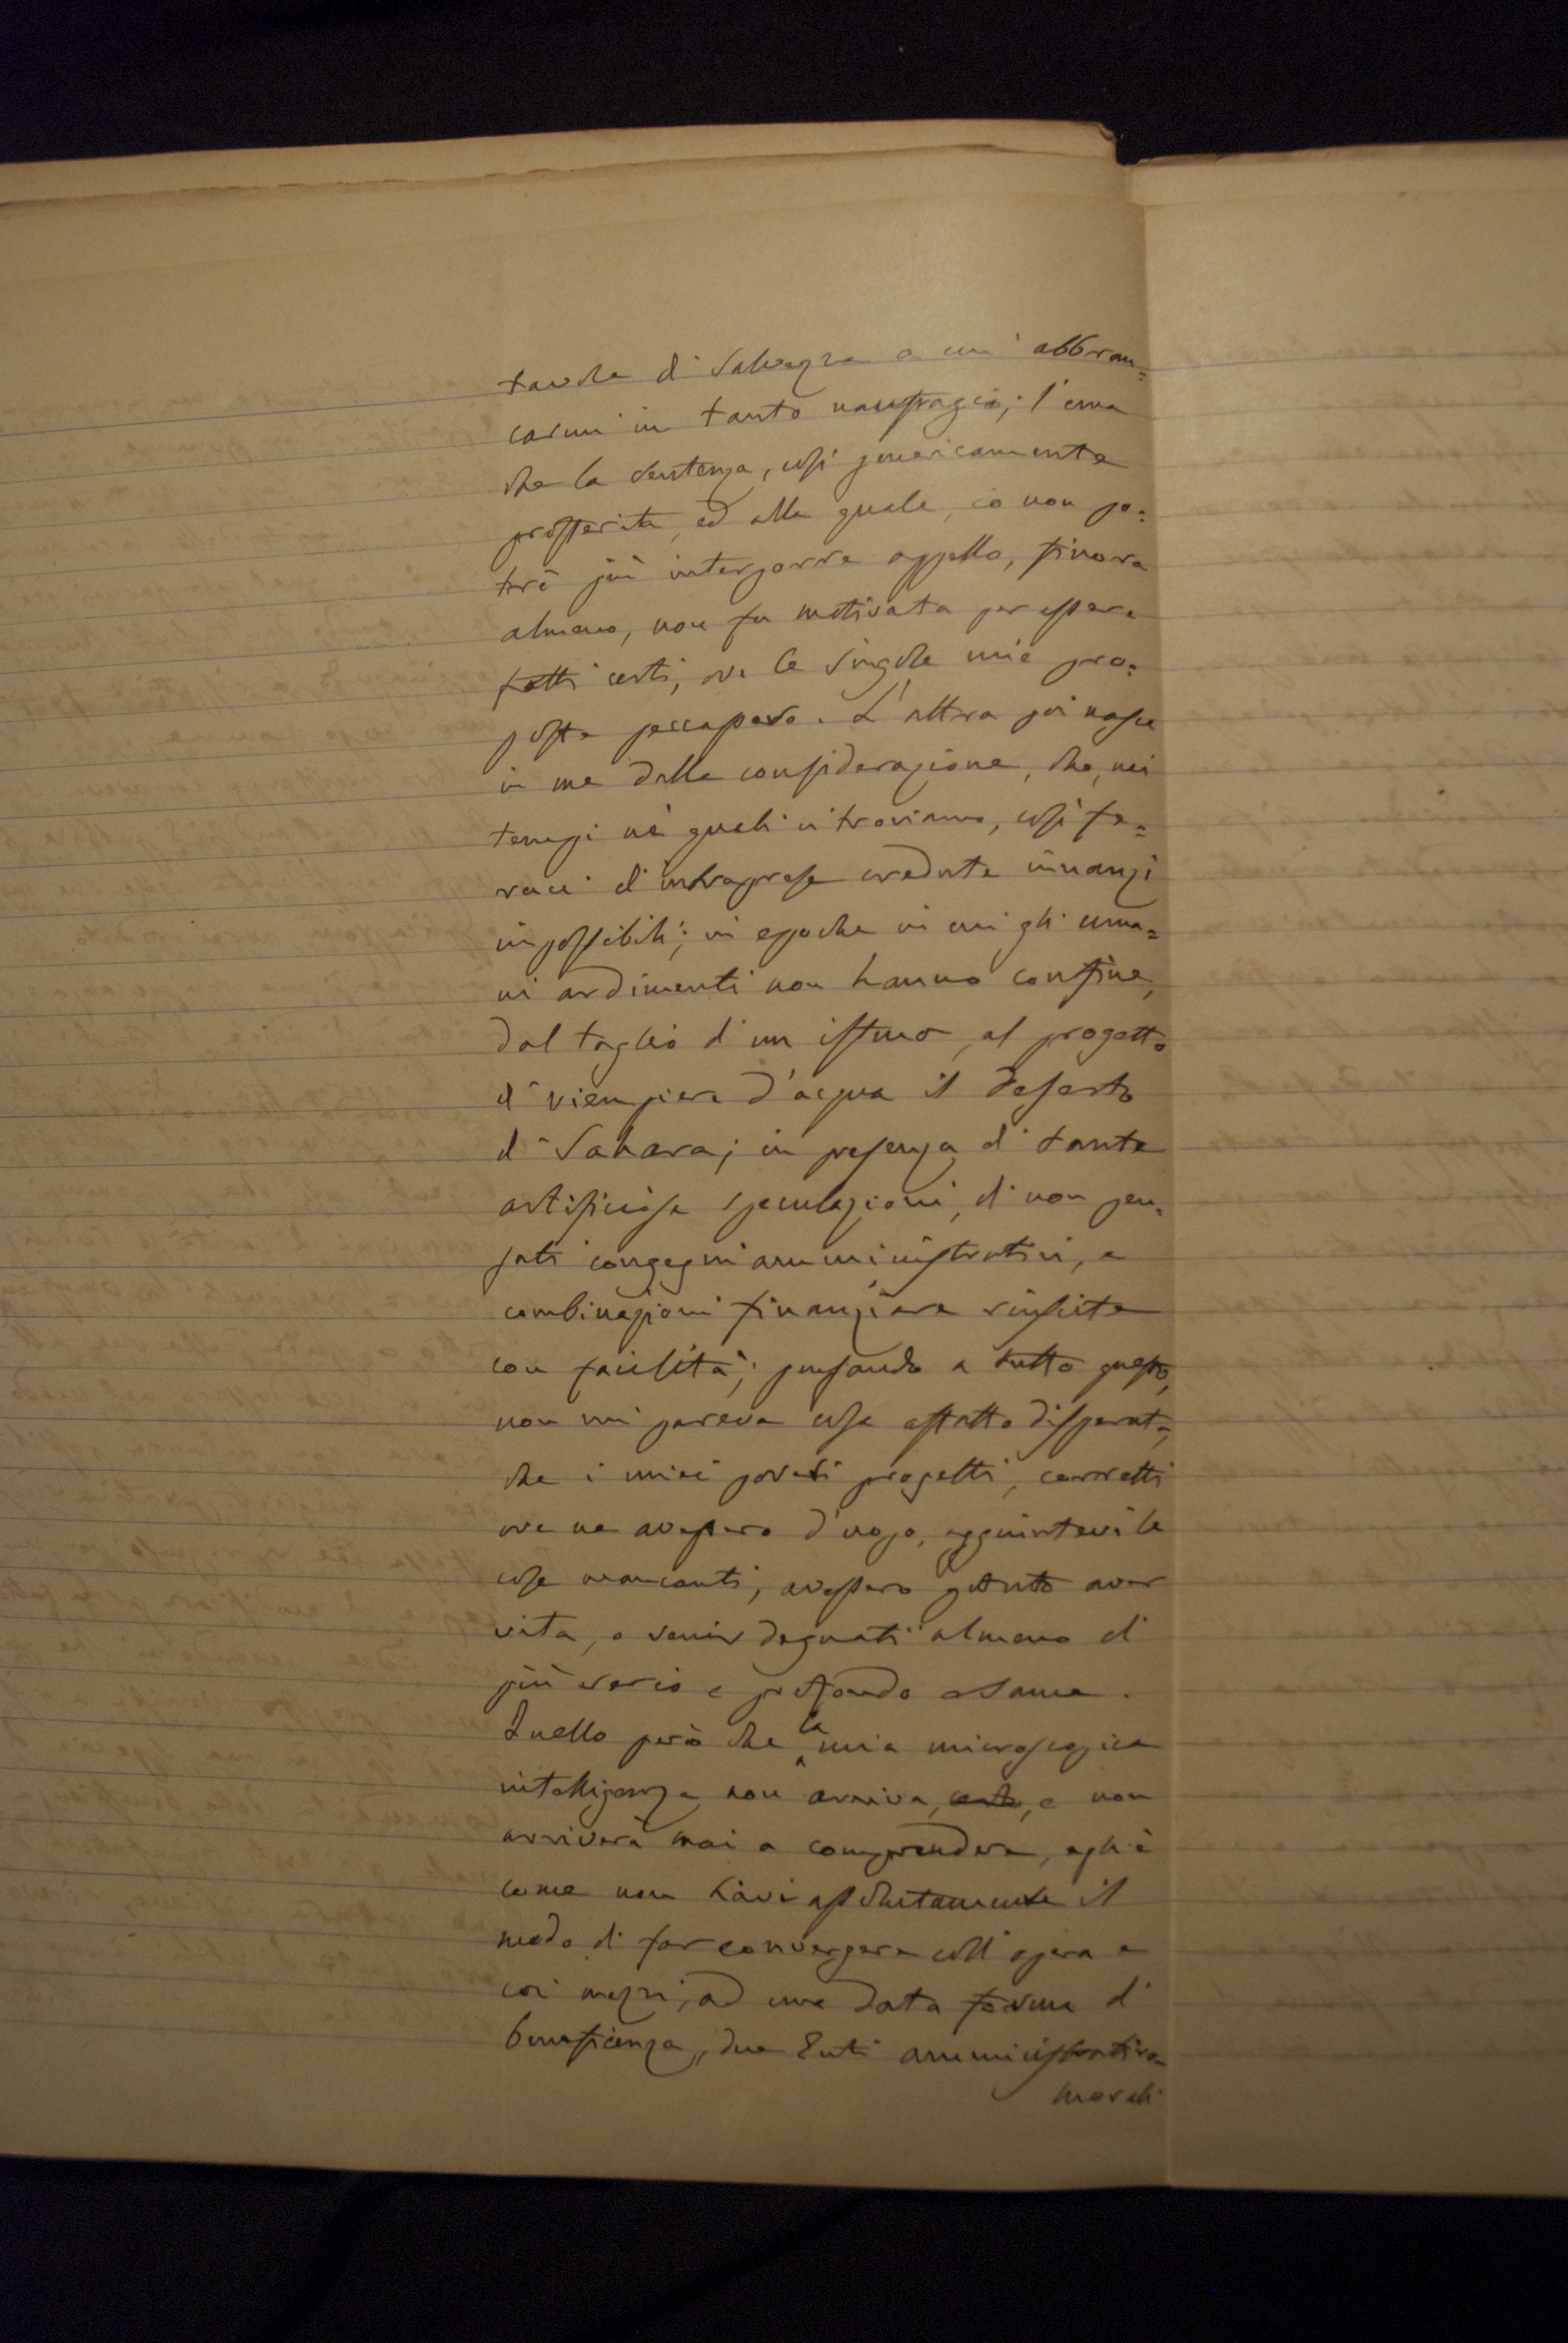 tavole di salvezza a cui abbran=
carmi in tanto naufragio; l'una
che la sentenza, così genericamente
profferita, ed alla quale, io non po=
trò più interporre appello, finora
almeno, non fu motivata per essere
fatti certi, ove le singole mie pro=
poste peccassero. L'altra poi nasce
in me dalla considerazione, che, nei
tempi nei quali ci troviamo, così fe=
raci di intraprese credute innanzi
impossibili; in epoche in cui gli uma=
ni ardimenti non hanno confine,
dal taglio d'un istmo, al progetto
di riempiere d'acqua il deserto
di Sahara; in presenza di tante
artificiose speculazioni, di non pen=
sati congegni amministrativi, e
combinazioni finanziare riuscite
con facilità; pensando a tutto questo,
non mi pareva cosa affatto disperata,
che i miei poveri progetti, corretti
ove ne avessero d'uopo, aggiuntevi le
cose mancanti, avessero potuto aver
vita, o venir degnati almeno di
più serio e profondo esame.
Quello però che la mia microscopica
intelligenza non arriva, e non
arriverà mai a comprendere, egli è
come non siavi assolutamente il
modo di far convergere coll'opera e
coi mezzi, ad una data forma di
beneficenza, due Enti amministrativo=
morali